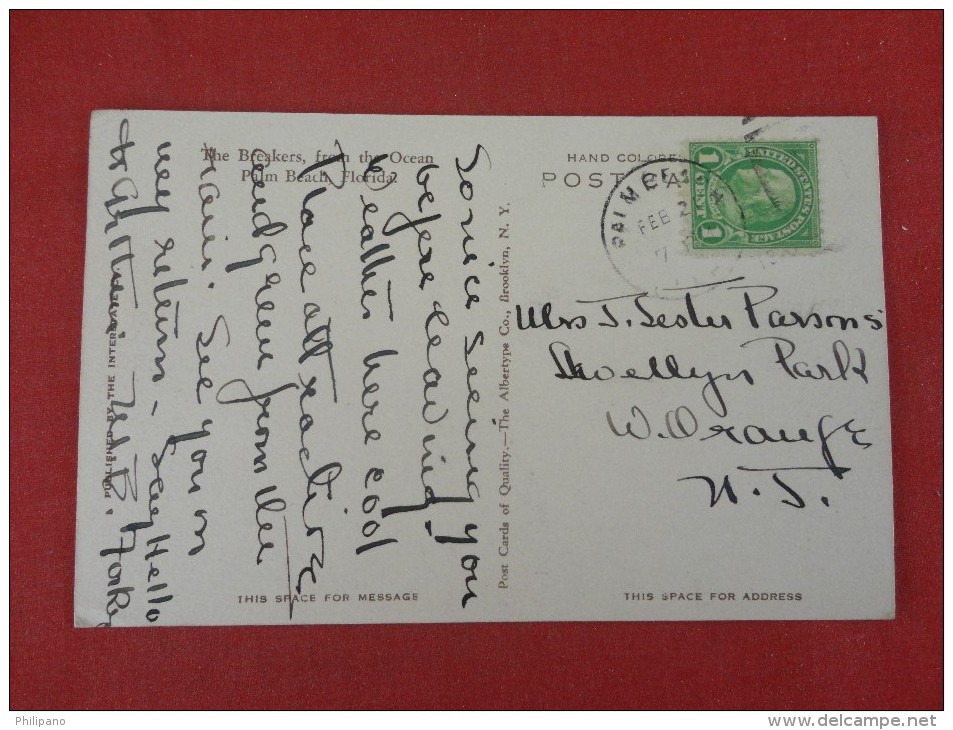 The Breakers, from the Ocean
Palm Beach, Florida.
So nice seeing you
before leaving -
Weather here cool
Place attractive
and green from the
rain. See you on
my return - Say Hello
PUBLISHED BY THE
THIS SPACE FOR MESSAGE
Post Cards of Quality.—The Albertype Co., Brooklyn, N. Y.
HAND COLORE
POST CA
PALM BE
FEB
7
UNITED STATES POSTAGE
1 CENT 1
Mrs J. Lester Parsons
Llwellyn Park
W. Orange
N. J.
THIS SPACE FOR ADDRESS
Philipano
delcampe.net